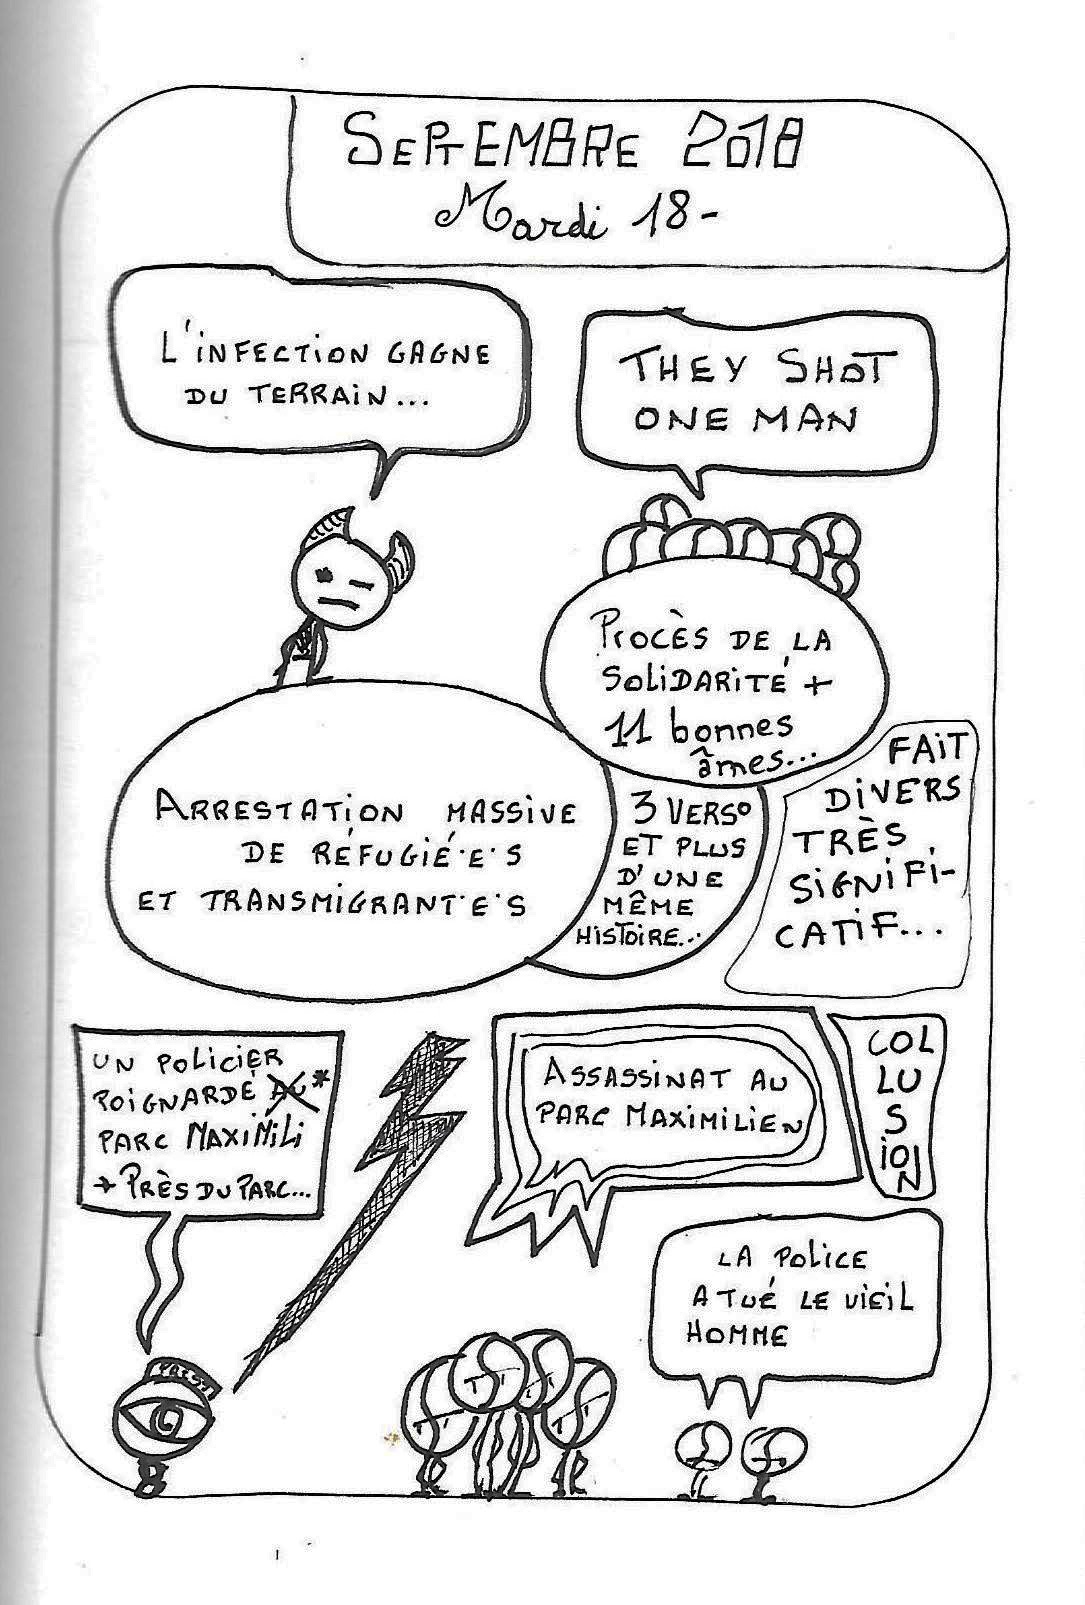 SEPTEMBRE 2018
Mardi 18-
L'INFECTION GAGNE
DU TERRAIN...
THEY SHOT
ONE MAN
PROCÈS DE LA
SOLIDARITÉ +
11 bonnes
âmes...
ARRESTATION MASSIVE
DE RÉFUGIÉ·E·S
ET TRANSMIGRANT·E·S
3 VERSO
ET PLUS
D'UNE
MÊME
HISTOIRE...
FAIT
DIVERS
TRÈS
SIGNIFI-
CATIF...
UN POLICIER
POIGNARDÉ AU*
PARC MAXIMILI
→ PRÈS DU PARC...
ASSASSINAT AU
PARC MAXIMILIEN
COL
LU
S
ION
LA POLICE
A TUÉ LE VIEIL
HOMME